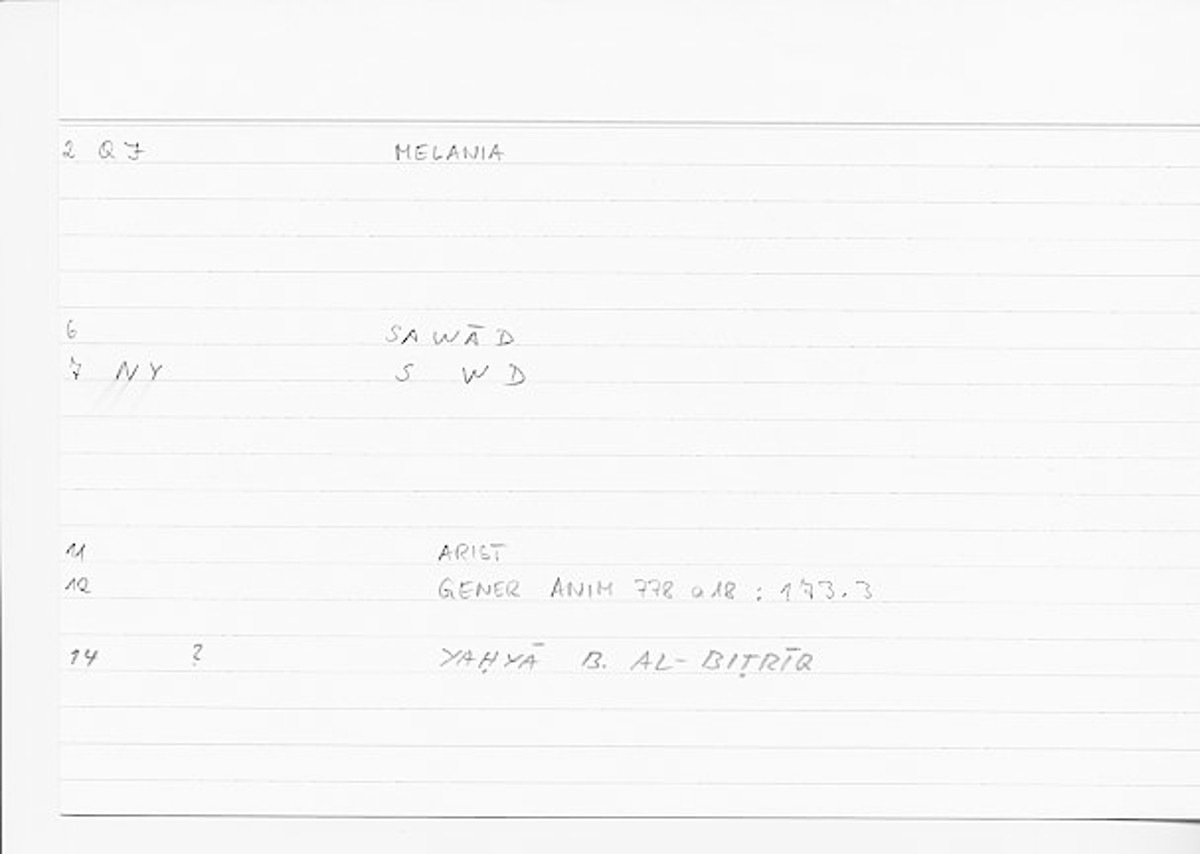 2 Q 7 MELANIA
6 SAWĀD
7 NY S W D
11 ARIST
12 GENER ANIM 778 a 18 : 173.3
14 ? YAḤYĀ B. AL-BIṬRĪQ